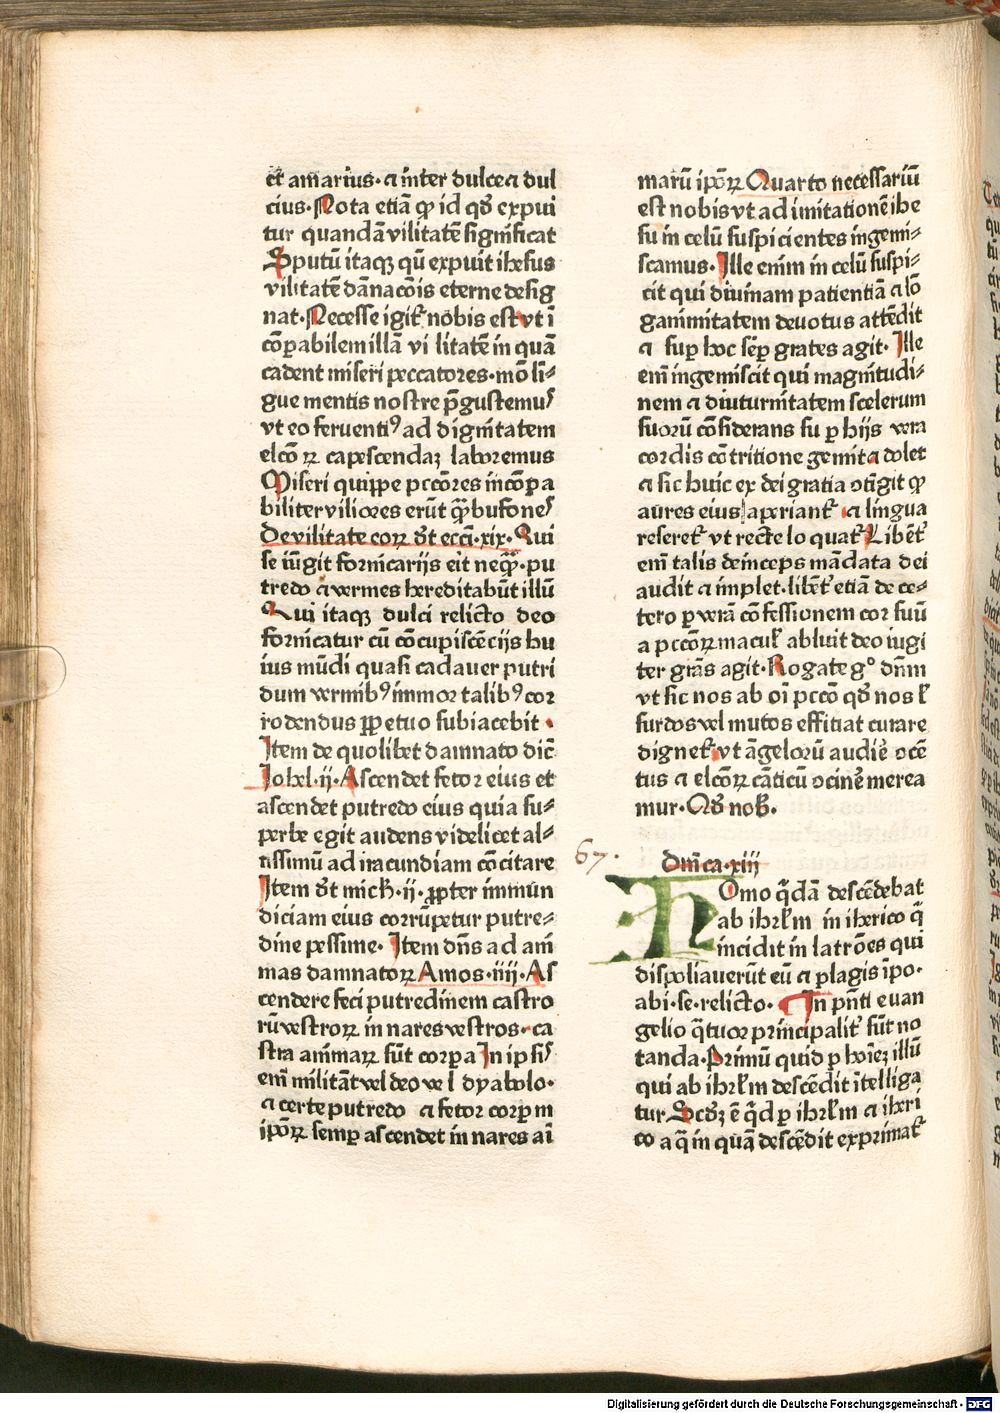 et amariuſ· ⁊ inter dulce ⁊ dul
cius· Nota etiā ꝙ id qḋ expui
tur quandā vilitatē ſignificat
Sputū itaqꝫ qū expuit iheſus
vilitatē dānacōis eterne deſig
nat· Neceſſe igit᷑ nobis eſt vt ī
cōꝑabilem illā vi litatē in quā
cadent miſeri peccatores· mō li⸗
gue mentis noſtre p̄guſtemuſ
vt eo feruentiꝰ ad dignitatem
elcōꝝ capeſcendaꝫ laboremus
Miſeri quippe pccōres incōꝑa
biliter viliores erūt qᷓꝫ bufoneſ
De vilitate eorꝝ dr̄t ecci·xix· Qui
ſe iūgit fornicarijs eit neqᷓꝫ· pu
tredo ⁊ vermes hereditabūt illū
Qui itaqꝫ dulci relicto deo
fornicatur cū cōcupiſcēcijs hu
ius mūdi quaſi cadauer putri
dum vermibꝰ immortalibꝰ cor
rodendus ꝑpetuo ſubiacebit·
Item de quolibet damnato dic̄
Johel·ij· Aſcendet fetor eius et
aſcendet putredo eius quia ſu⸗
perbe egit audens videlicet al⸗
tiſſimū ad iracundiam cōcitare
Item dr̄t mich·ij· ꝓpter immūn
diciam eius corrūpetur putre⸗
dine peſſime· Item dn̄s ad ani
mas damnatoꝝ Amos·iiij· Aſ
cendere feci putredinem caſtro
rū veſtroꝝ in nares veſtros· ca
ſtra animaꝝ ſūt corpa In ipſiſ
enī militāt vel deo vel dyabolo·
⁊ certe putredo ⁊ fetor corpm
ipōꝝ ſemꝑ aſcendet in nares ai
marū ipōꝝ Quarto neceſſariū
eſt nobis vt ad imitationē ihe
ſu in celū ſuſpicientes ingemi⸗
ſcamus· Ille enim in celū ſuſpi⸗
cit qui diuinam patientiā ⁊ lō
ganimitatem deuotus attēdit
⁊ ſuꝑ hoc ſēꝑ grates agit· Ille
enī ingemiſcit qui magnitudi⸗
nem ⁊ diuturnitatem ſcelerum
ſuorū cōſiderans ſuꝑ hijs vera
cordis cōtritione gemit ⁊ dolet
⁊ ſic huic ex dei gratia ↄtīgit ꝙ
aures eius aperiant᷑ ⁊ lingua
reſeret᷑ vt recte loquat᷑ Libent᷑
enī talis deinceps mādata dei
audit ⁊ implet· libent᷑ etiā de ce⸗
tero ꝑ verā cōfeſſionem cor ſuū
a pccōꝝ macul᷑ abluit deo iugi
ter grās agit· Rogate g° dn̄m
vt ſic nos ab oī pccō qḋ nos l᷑
ſurdos vel mutos efficiat curare
dignet᷑ vt āgelorū audiē ↄcē
tus ⁊ elcōꝝ cāticū ↄcinē merea
mur· Qḋ nob̄·
67·
Dn̄ica·xiij
Homo qͥdā deſcēdebat
ab ihrl̄m in iherico q̄
incidit in latrōes qui
diſpoliauerūt eū ⁊ plagis īpo·
abi·ſe·relicto· In pn̄ti euan
gelio q̄tuor principalit᷑ ſūt no
tanda· Primū quid ꝑ hoīeꝫ illū
qui ab ihrl̄m deſcēdit ītelliga
tur Scḋꝫ ē qͥd ꝑ ihrl̄m ⁊ iheri
co a q̄ in quā deſcēdit exprimat᷑
Digitalisierung gefördert durch die Deutsche Forschungsgemeinschaft - DFG